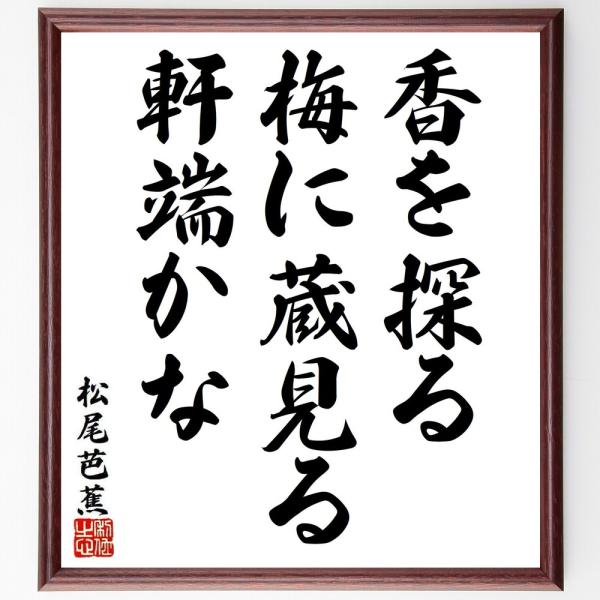 香を探る
梅に蔵見る
軒端かな
松尾芭蕉